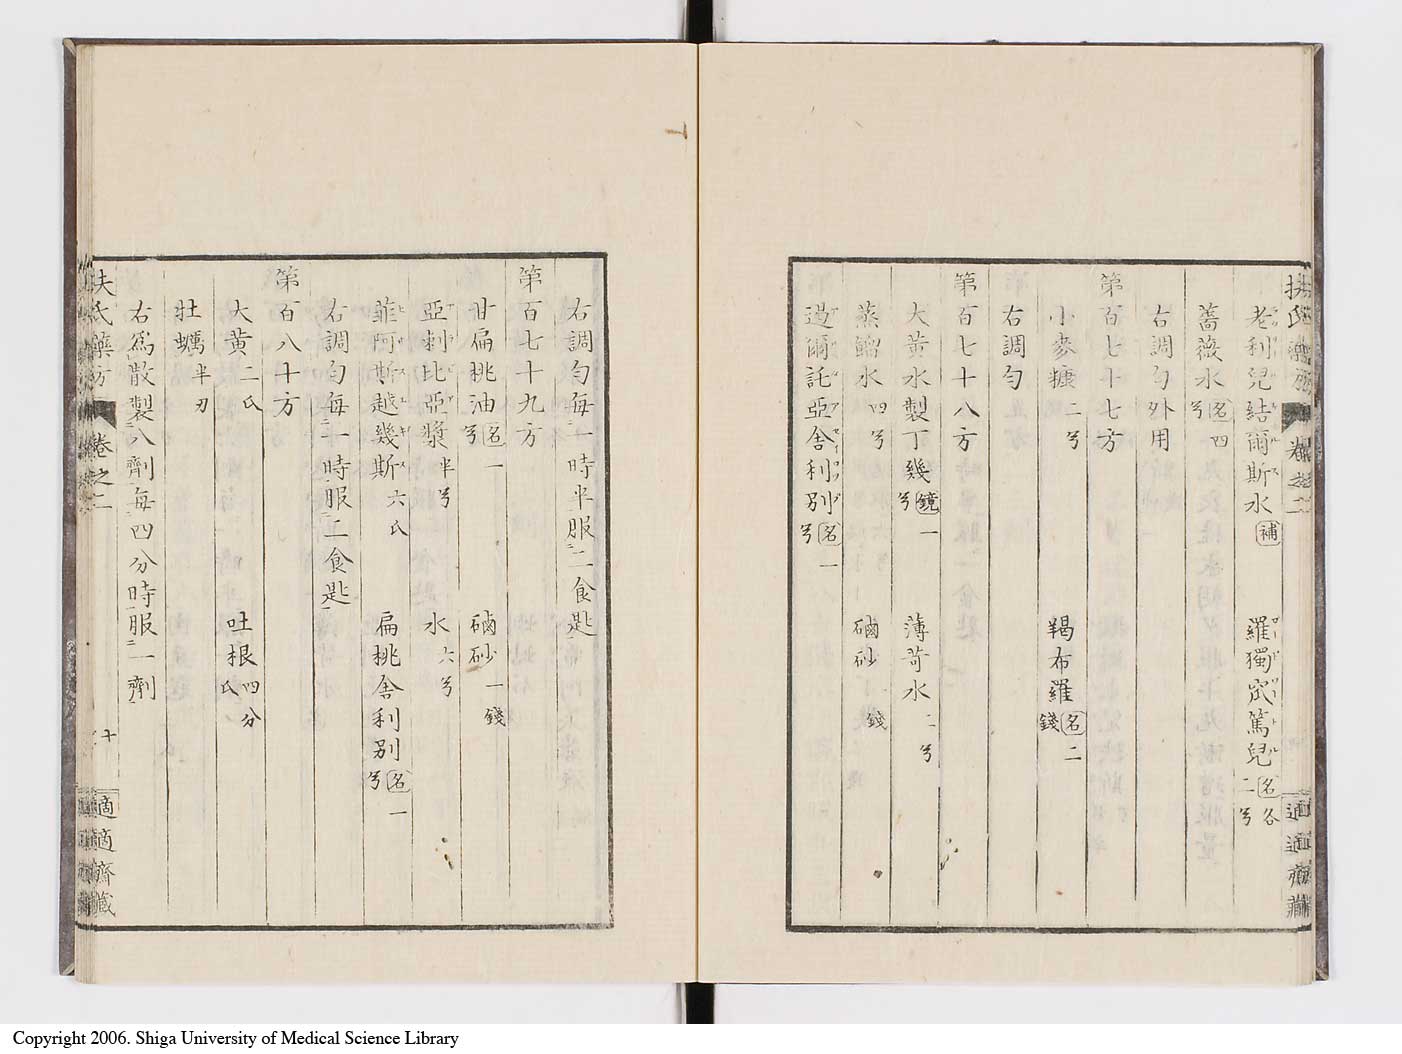 老利兒結爾斯水補 羅獨宻篤兒名各二兮
薔薇水名四兮
右調勻外用
第百七十七方
小麥糠二兮 羯布羅名二錢
右調勻
第百七十八方
大黄水製丁幾鏡一兮 薄苛水二兮
蒸餾水四兮 磠砂錢
過爾託亞舎利別名一兮
右調匀每一時半服二食匙
第百七十九方
甘扁桃油名一兮 磠砂一錢
亞剌比亞漿半兮 水六兮
菲阿斯越幾斯六氏 扁桃舎利別名一兮
右調匀每一時服二食匙
第百八十方
大黄二氏 吐根四分氏
牡蠣半刃
右爲散製八劑每四分時服一劑
扶氏藥方 卷之二 十 適適齋藏
Copyright 2006. Shiga University of Medical Science Library